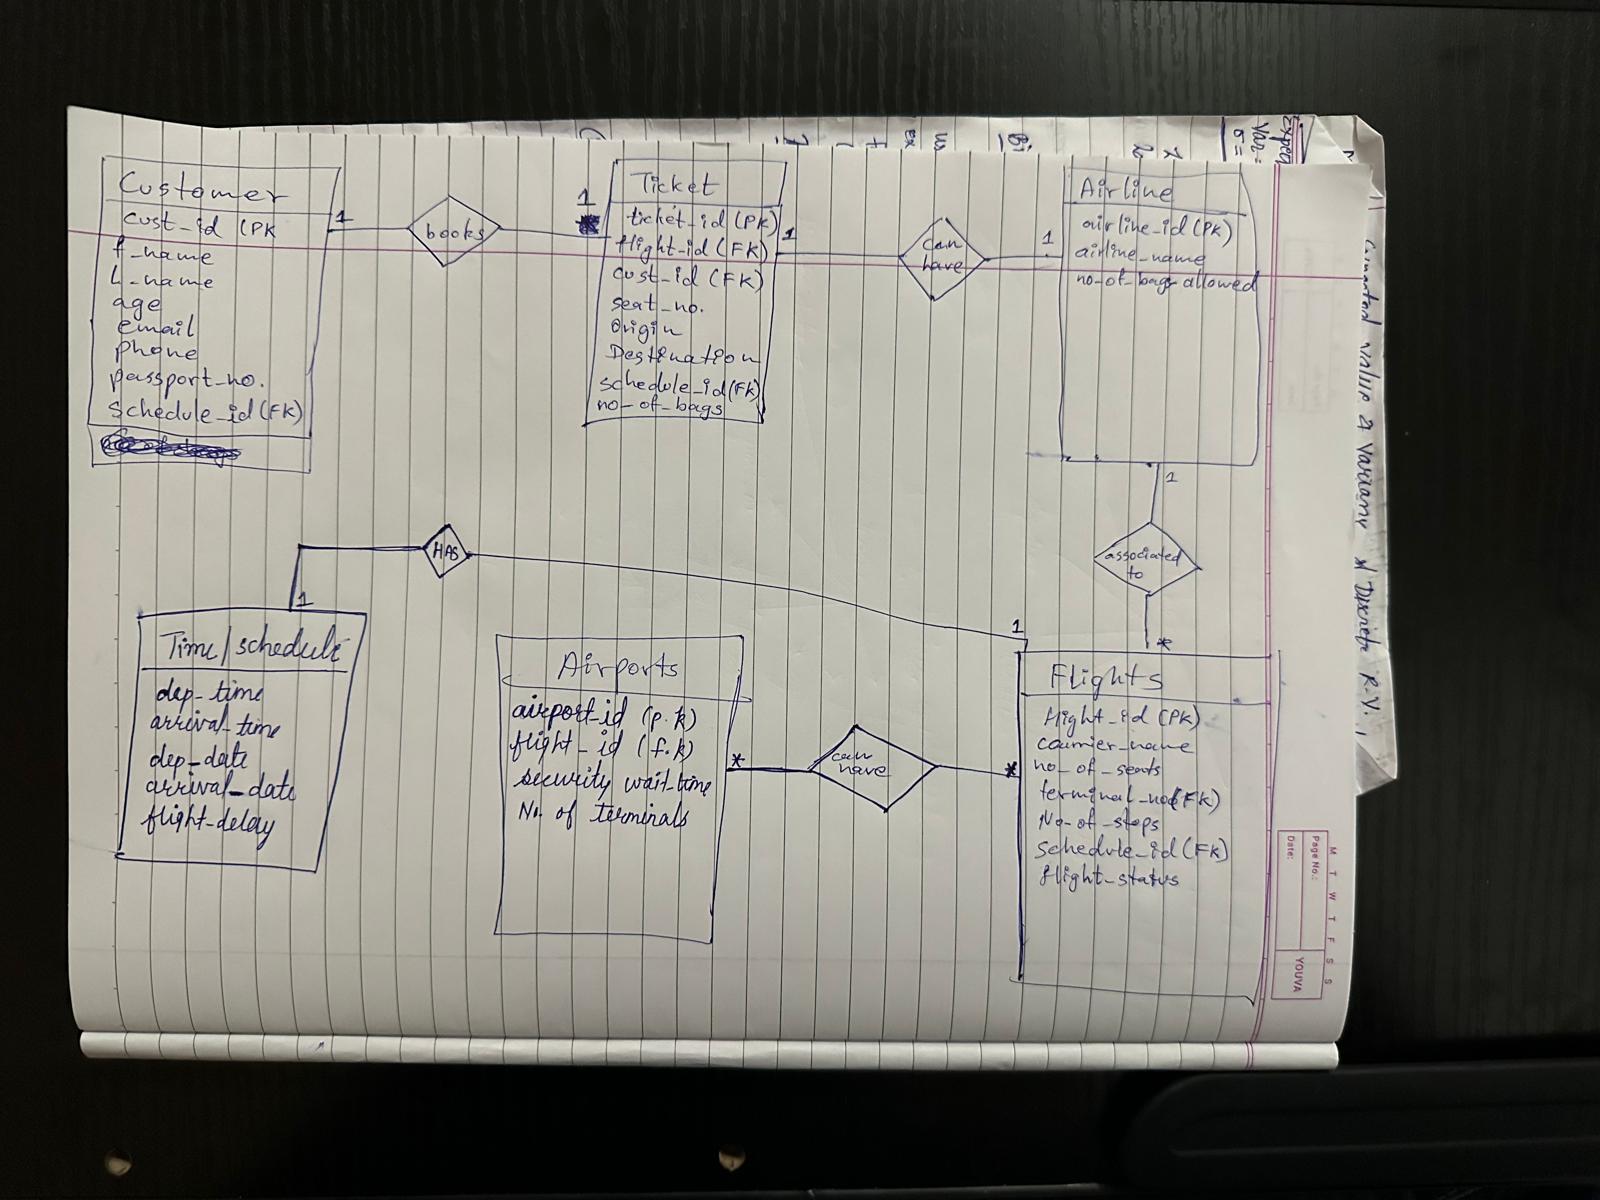 Customer
cust_id (PK
f_name
L_name
age
email
phone
passport_no.
schedule_id (FK)
1
books
1
*
Ticket
ticket_id (PK)
flight_id (FK)
cust_id (FK)
seat_no.
Origin
Destination
schedule_id (FK)
no_of_bags
1
can
have
1
Airline
airline_id (PK)
airline_name
no_of_bags allowed
1
associated
to
*
HAS
1
1
Time/schedule
dep_time
arrival_time
dep_date
arrival_date
flight_delay
Airports
airport_id (p.k)
flight_id (f.k)
security wait_time
No. of terminals
*
can
have
*
Flights
flight_id (PK)
courrier_name
no_of_seats
terminal_no (FK)
No_of_stops
schedule_id (FK)
flight_status
Expec
Var =
σ =
Variance of Discrete R.V.
M T W T F S S
Page No.:
Date:
YOUVA